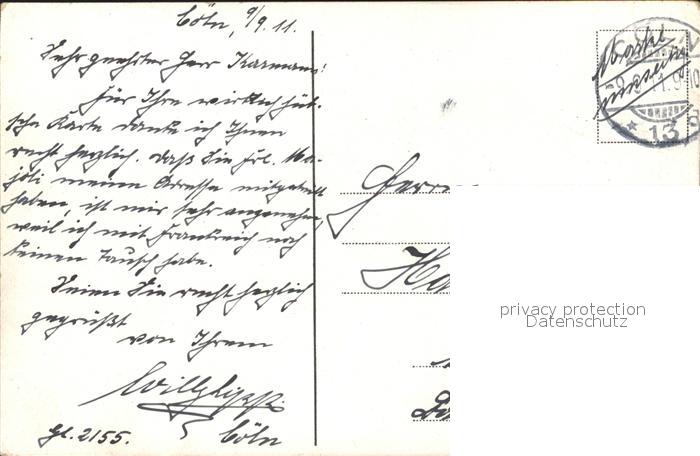 Cöln, 9/9. 11.
Sehr geehrter Herr Karmann!
Für Ihre wirklich hüb-
sche Karte danke ich Ihnen
recht herzlich. Daß Sie Frl. Ma-
joli meine Adresse mitgeteilt
haben, ist mir sehr angenehm,
weil ich mit Frankreich noch
keinen Tausch habe.
Seien Sie recht herzlich
gegrüßt
von Ihrem
Gl. 2155. Cöln
Marke
umseitig
9.9.11.9-10
* 13
Herrn
privacy protection
Datenschutz